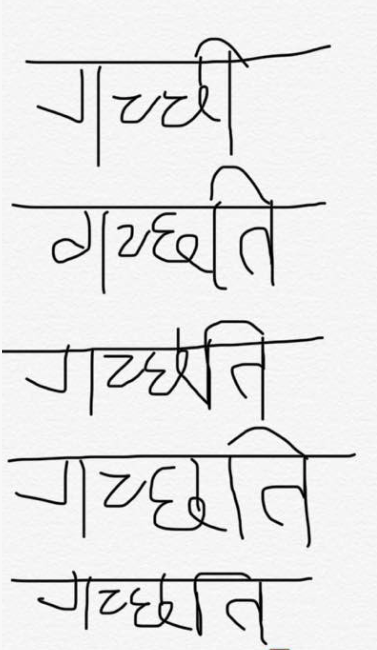 गच्छति
गच्छति
गच्छति
गच्छति